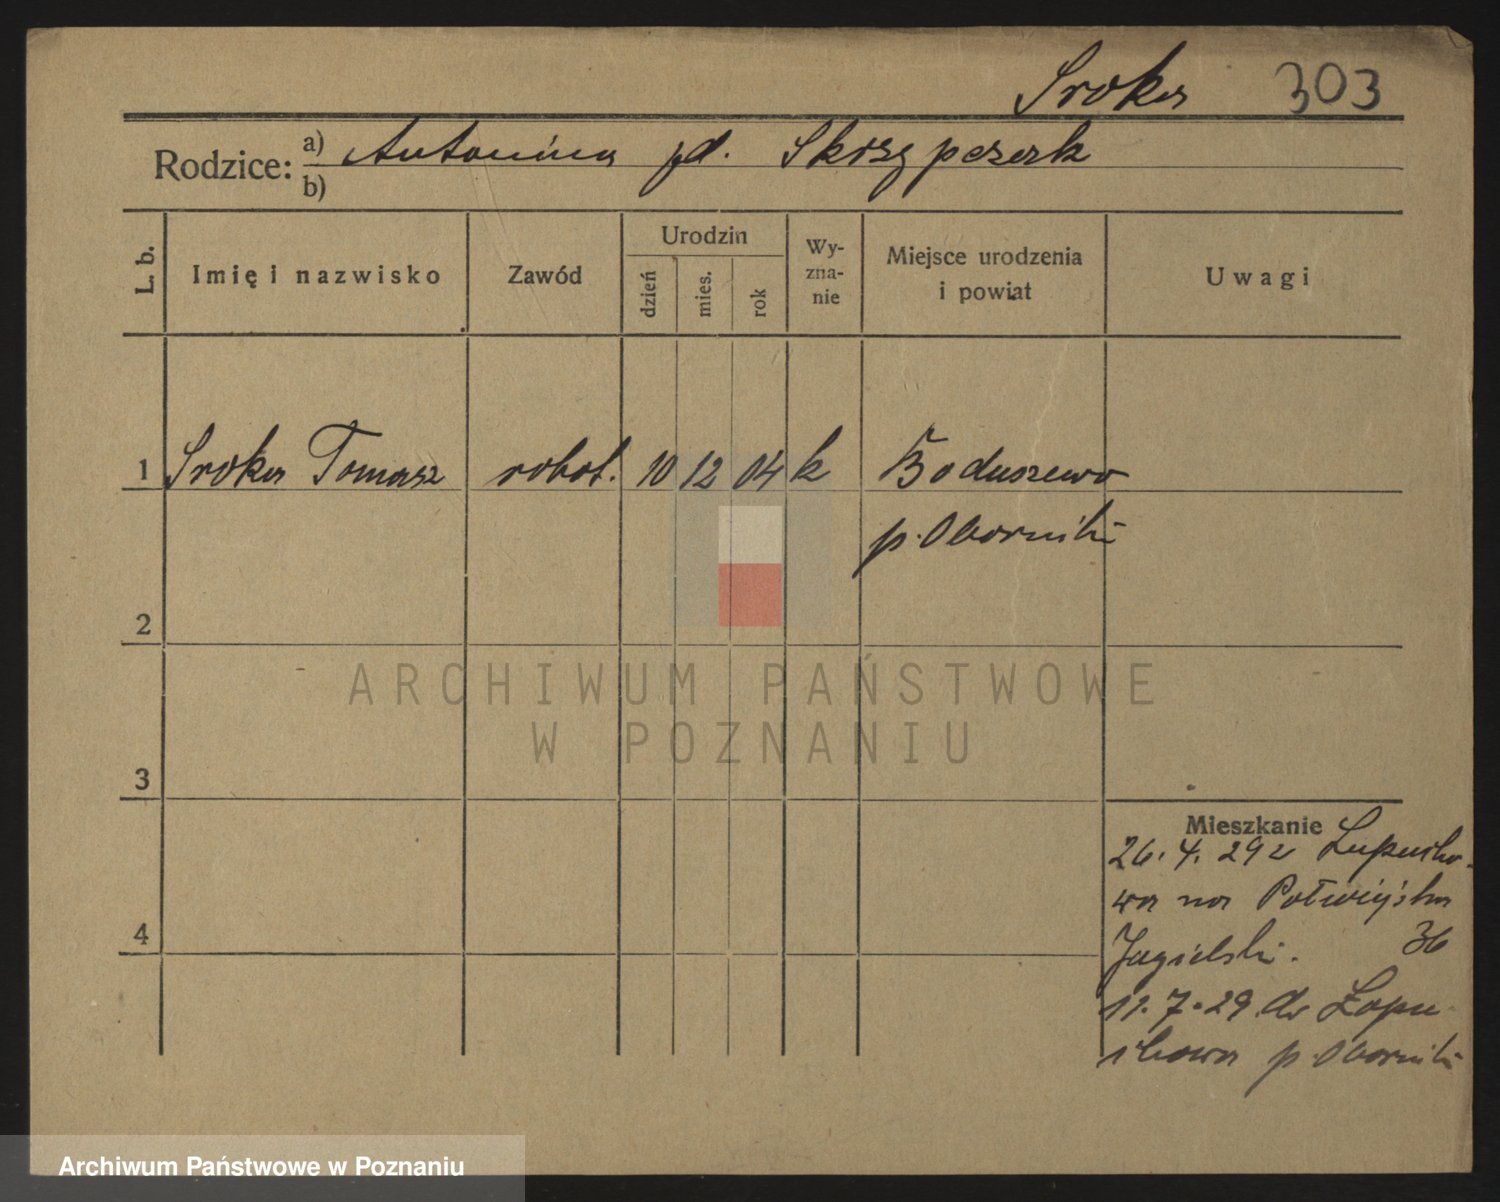 Sroka 303
Rodzice: a) Antonina pd. Skrzypczak
b)
L. b. Imię i nazwisko Zawód Urodzin dzień mies. rok Wy-
zna-
nie Miejsce urodzenia
i powiat Uwagi
1 Sroka Tomasz robot. 10 12 04 k Boduszewo
p. Oborniki
2
ARCHIWUM PAŃSTWOWE
W POZNANIU
3
Mieszkanie
26. 4. 29 z Łopucho-
wa na Potwiejska
Jagielski. 36
11. 7. 29 do Łopu-
chowa p. Oborniki
4
Archiwum Państwowe w Poznaniu